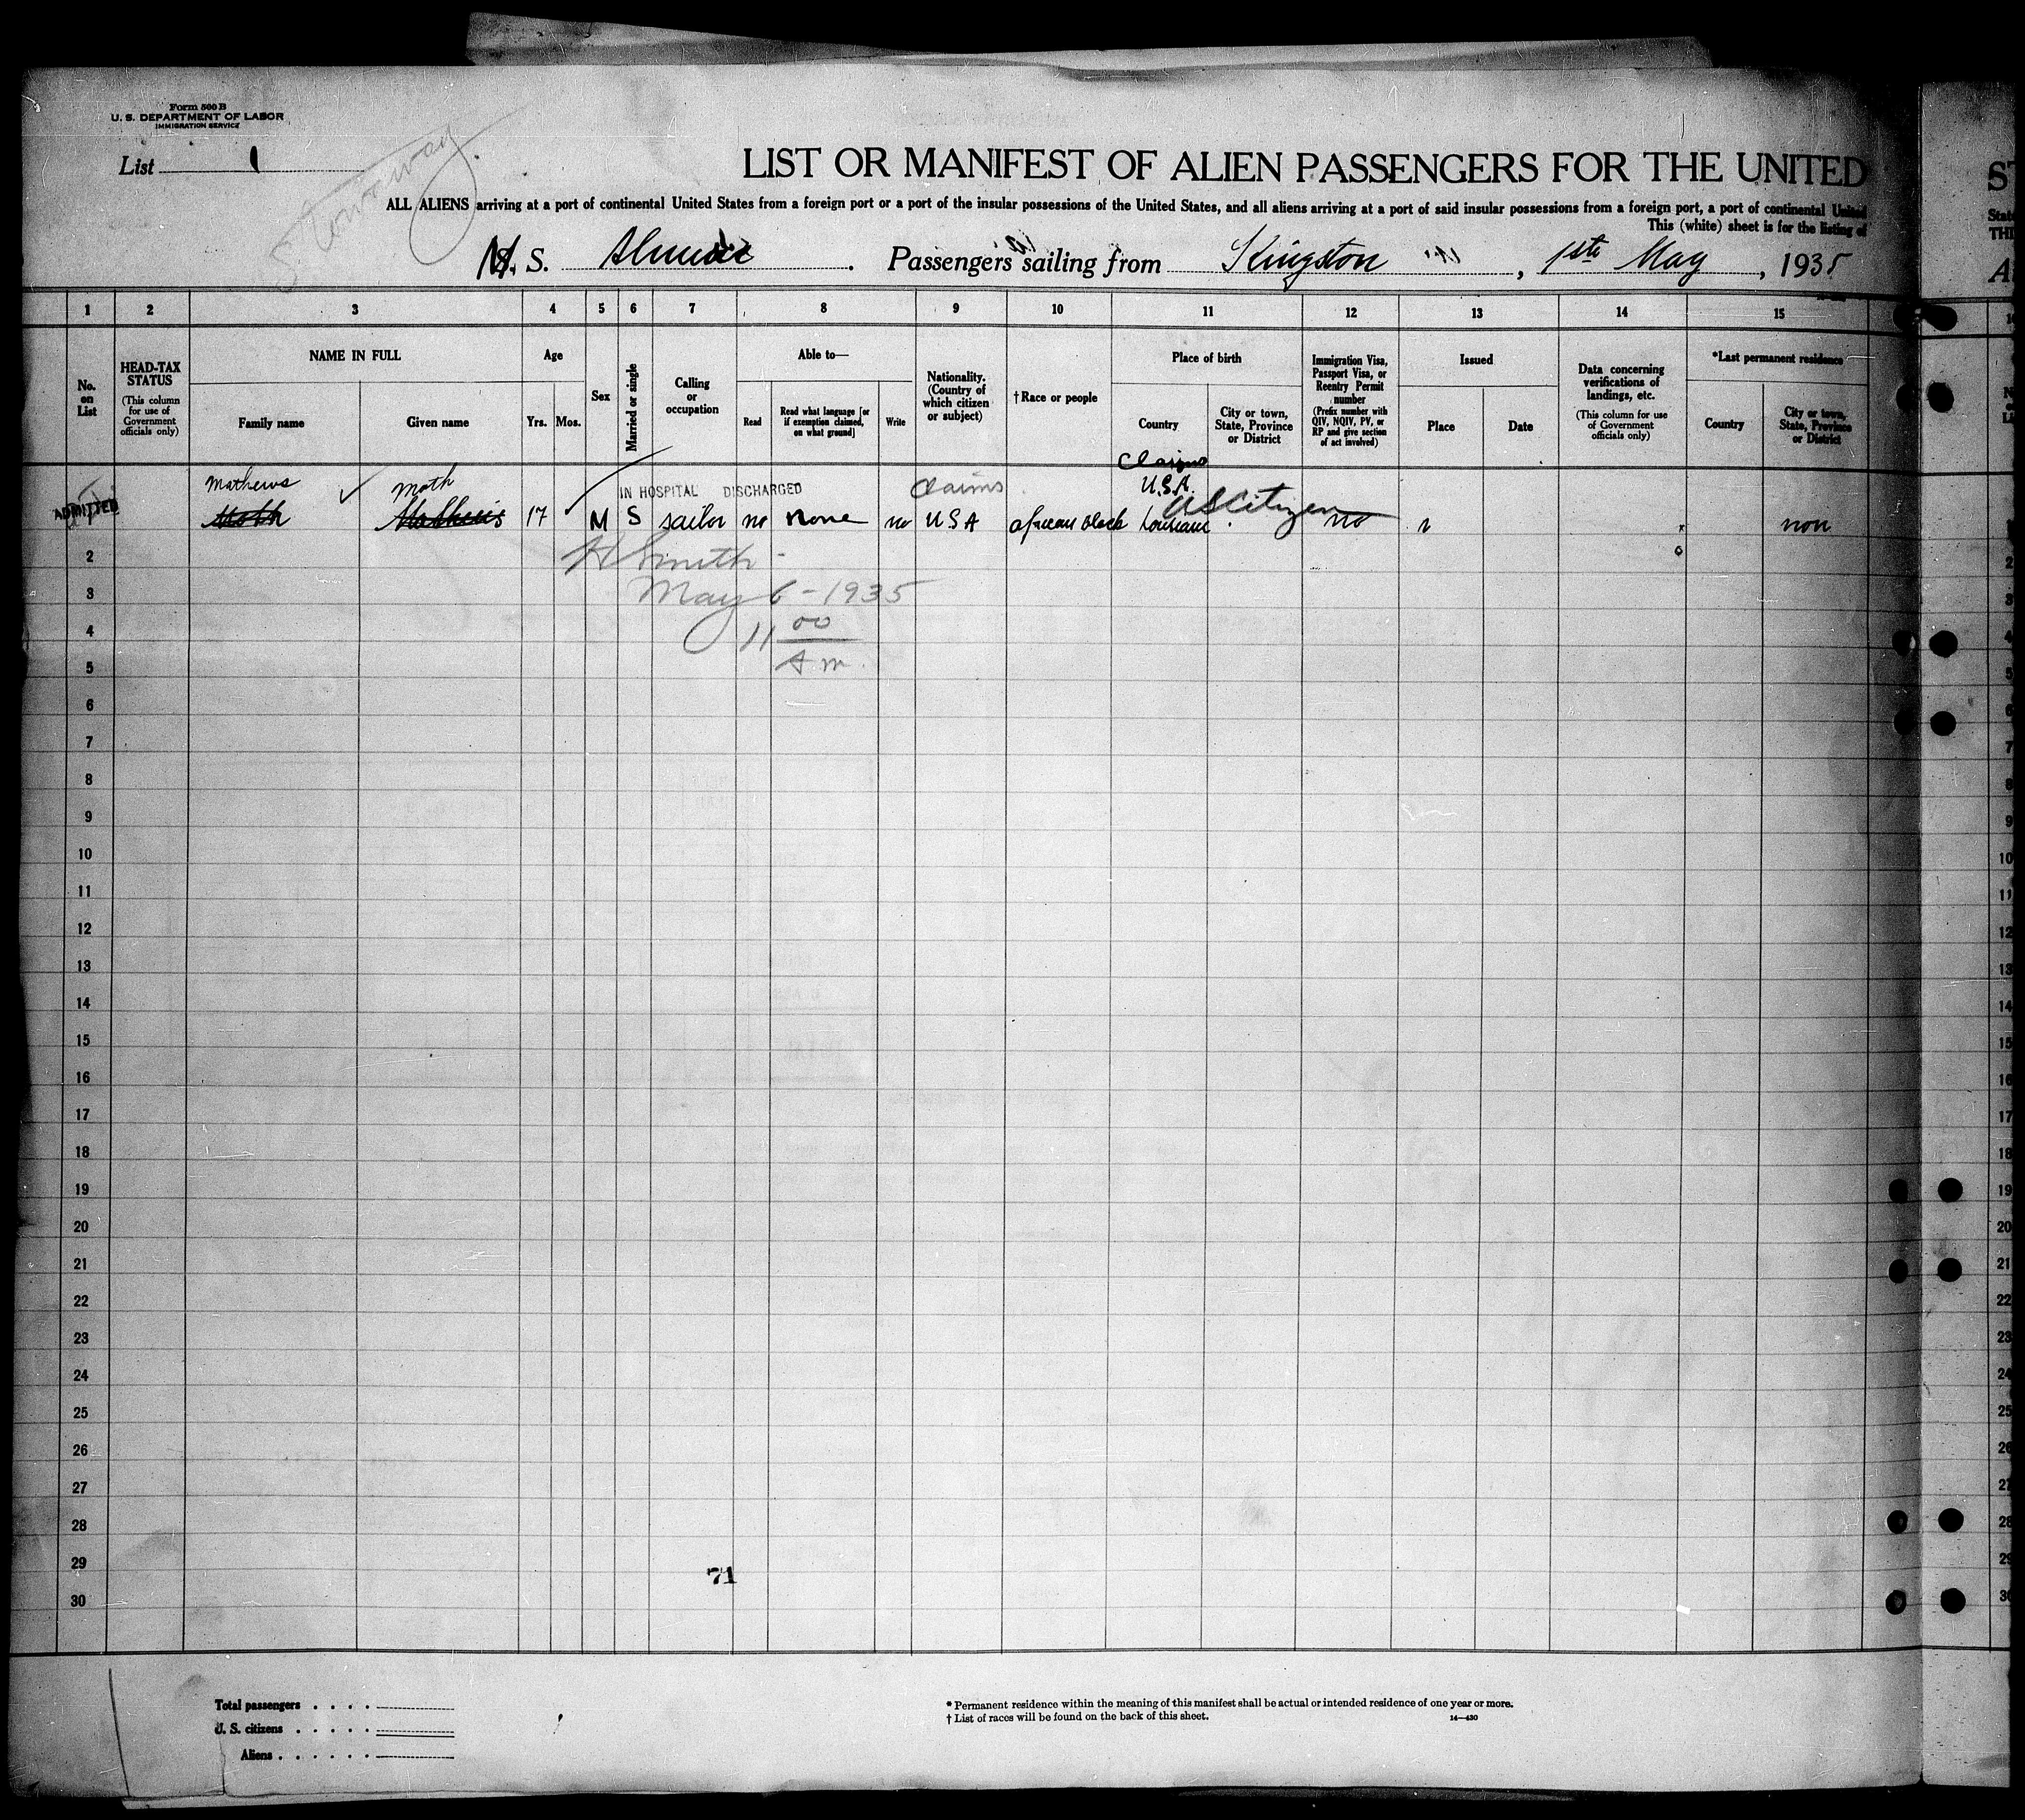 Form 500 B
U. S. DEPARTMENT OF LABOR
IMMIGRATION SERVICE
List 1
Stowaway.
LIST OR MANIFEST OF ALIEN PASSENGERS FOR THE UNITED
ALL ALIENS arriving at a port of continental United States from a foreign port or a port of the insular possessions of the United States, and all aliens arriving at a port of said insular possessions from a foreign port, a port of continental United
This (white) sheet is for the listing of
M. S. Passengers sailing from Kingston, 1ste May, 1935
1 2 3 4 5 6 7 8 9 10 11 12 13 14 15
No. on List
HEAD-TAX STATUS
(This column for use of Government officials only)
NAME IN FULL
Family name
Given name
Age
Yrs. Mos.
Sex
Married or single
Calling or occupation
Able to—
Read
Read what language [or if exemption claimed, on what ground]
Write
Nationality. (Country of which citizen or subject)
†Race or people
Place of birth
Country
City or town, State, Province or District
Immigration Visa, Passport Visa, or Reentry Permit number
(Prefix number with QIV, NQIV, PV, or RP and give section of act involved)
Issued
Place
Date
Data concerning verifications of landings, etc.
(This column for use of Government officials only)
*Last permanent residence
Country
City or town, State, Province or District
Claims
Mathews ✓ Moth IN HOSPITAL DISCHARGED Claims U.S.A. US Citizen
ADMITTED Moth Mathews 17 M S sailor no none no USA african black Louisiana no non
2 H Smith
3 May 6 - 1935
4 11 00
5 A m.
6
7
8
9
10
11
12
13
14
15
16
17
18
19
20
21
22
23
24
25
26
27
28
29
71
30
Total passengers
U. S. citizens
Aliens
* Permanent residence within the meaning of this manifest shall be actual or intended residence of one year or more.
† List of races will be found on the back of this sheet.
14—430